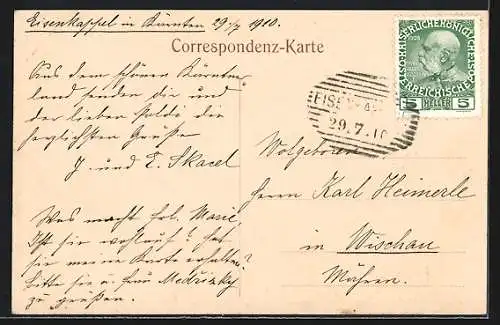 Eisenkappel in Kärnten 29./7 1910.
Correspondenz-Karte
Aus dem schönen Kärntner-
land senden dir und
der lieben Poldi die
herzlichsten Grüße
J. und E. Skacel
Was macht frl. Marie
Ist sie wohlauf? hat
sie meine Karte erhalten?
bitte sie u. frau Medřizky
zu grüßen.
KAISERLICHE KÖNIGLICHE
ÖSTERREICHISCHE
5 HELLER 5
29.7.10
Wolgeboren
Herrn Karl Heimerle
in Wischau
Mähren.